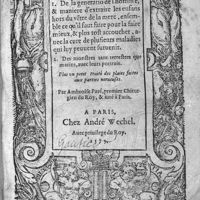 1. De la generation de l'homme,
& maniere d'extraire les enfans
hors du vêtre de la mere, ensem-
ble ce qu'il faut faire pour la faire
mieux, & plus tost accoucher, a-
uec la cure de plusieurs maladies
qui luy peuuent suruenir.
2. Des monstres tant terrestres que
marins, auec leurs portrais.
Plus un petit traité des plaies faites
aux parties nerueuses.
Par Ambroise Paré, premier Chirur-
gien du Roy, & iuré à Paris.
A PARIS,
Chez André Wechel.
Auec priuilege du Roy.